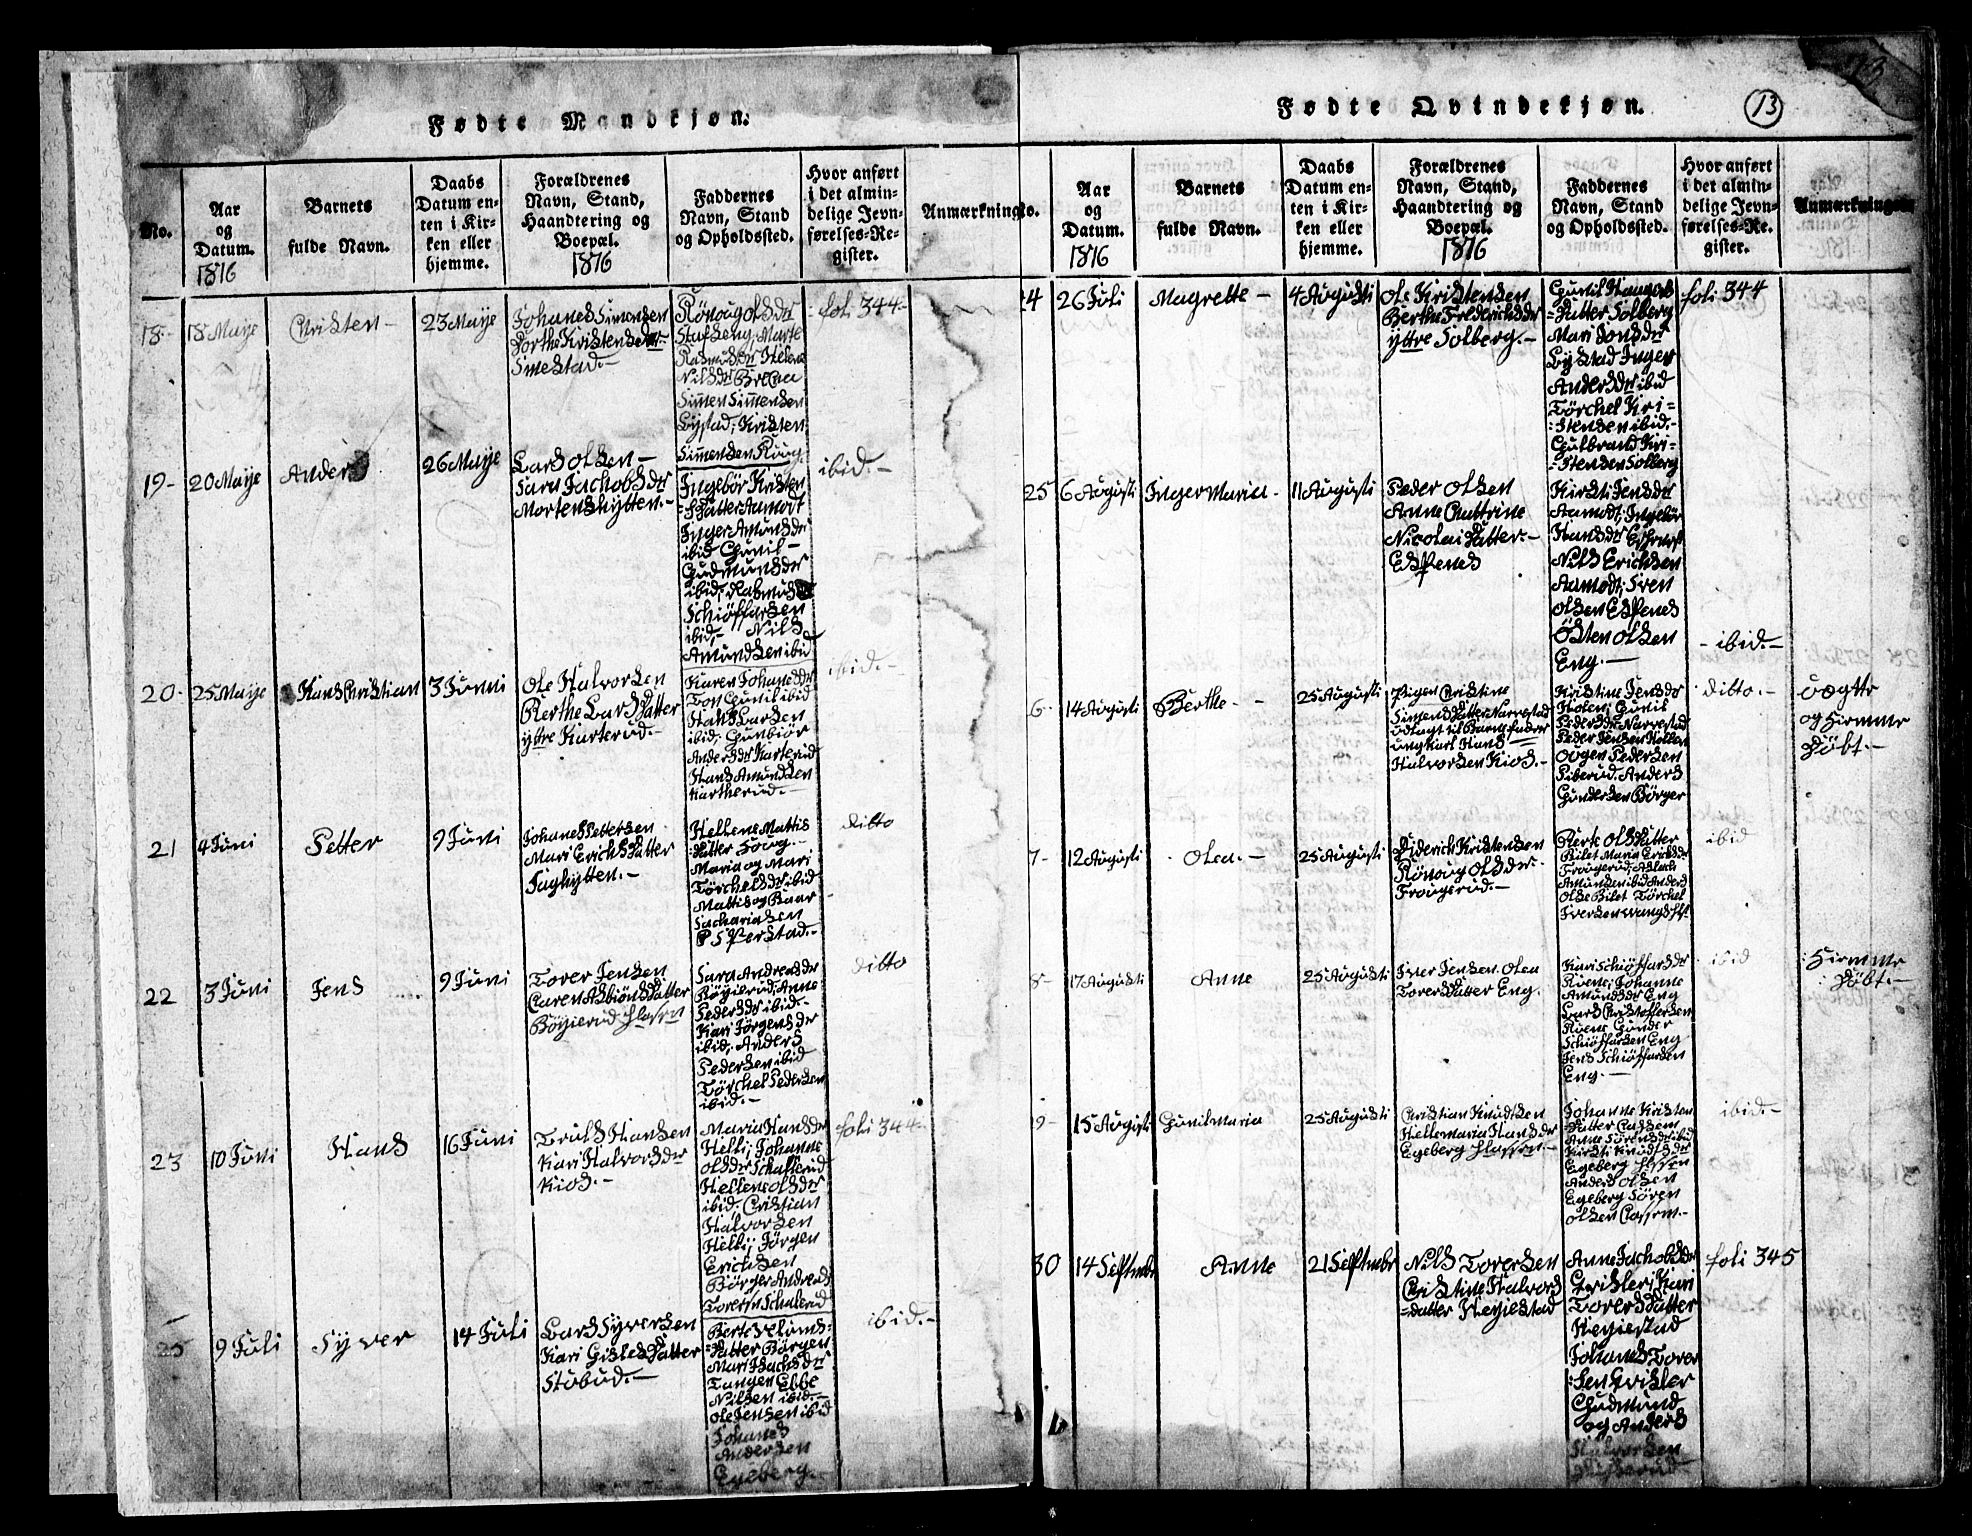 13
Fødte Mandkjøn.
No.
Aar
og
Datum.
1816
Barnets
fulde Navn.
Daabs
Datum en-
ten i Kir-
ken eller
hjemme.
Forældrenes
Navn, Stand,
Haandtering og
Boepæl.
1816
Faddernes
Navn, Stand
og Opholdssted.
Hvor anført
i det almin-
delige Jevn-
førelses-Re-
gister.
Anmærkning
18-
18 Maye
Christen-
23 Maye
Johanes Simensen
Dorthe Kristensdtr
Smestad.-
Rönoug olsdtr
Stafseng; Marte
Rasmusdtr Helene
Nilsdtr
Simen Simensen
Lystad; Kristen
Simensen Roug
foli 344-
19-
20 Maye
Anders
26 Maye
Lars olsen-
Sara Jachobsdtr
Mortenshytten.-
Ingebör Kristen
=Datter Aamodt
Inger Amunsdtr
ibid Gunil-
Gudmunsdtr
ibid; Rasmus
Schiöffarsen
ibid,- Nils
Amundsen ibid
ibid.-
20-
25 Maye
Hans Christian
3 Juni
Ole Halvorsen
Berthe Lars Datter
yttre Karterud.-
Karen Johanesdtr
Toy Gunil ibid
Hans Larsen
ibid; Gunbiör
Andersdtr Karterud
Hans Amundsen
Kartherud.-
ibid.-
21
4 Juni
Petter
9 Juni
Johanes Pettersen
Mari Erichs Datter
Faghytten.-
Hellene Mattis
Datter Houg.-
Maria og Mari
Törchelsdtr ibid
Mattis og Baar
Sachariasen
Ditto
22
3 Juni
Jens
9 Juni
Torer Jensen
Caren Asbiöns Datter
Böyierud Plassen
Sara Andreasdtr
Böyierud; Anne
Pedersdtr ibid.-
Kari Jörgensdtr
ibid; Anders
Pedersen ibid
Törchel Pedersen
ibid.-
Ditto
23
10 Juni
Hans
16 Juni
Truls Hansen
Kari Halvorsdtr
Kios.-
Maria Hansdtr
Helli; Johanne
olsdtr Schallerud
Hellene olsdtr
ibid. Cristian
Halvorsen
Helli; Jörgen
Erichsen
Börger Andreas
Toresen Schalerud
foli 344-
25
9 Juli
Syver
14 Juli
Lars Syversen
Kari Gisles Datter
Stubud.-
Berte
=Datter Börgen
Mari Isachsdtr
Tangen Ebbe
Nilsen ibid.-
ole Jensen ibid
Johanes
Andersen
Egeberg.-
ibid.-
Fødte Qvindekjøn.
13
No.
Aar
og
Datum.
1816
Barnets
fulde Navn.
Daabs
Datum en-
ten i Kir-
ken eller
hjemme.
Forældrenes
Navn, Stand,
Haandtering og
Boepæl.
1816
Faddernes
Navn, Stand
og Opholdssted.
Hvor anført
i det almin-
delige Jevn-
førelses-Re-
gister.
Anmærkninger
24
26 Juli
Magrette-
4 Augusti
Ole Kristensen
Berthe Frederichsdtr
yttre Solberg.-
Gunil Haagens
=Datter Solberg
Mari Jonsdtr
Lystad Inger
Andersdtr ibid
Törchel Kri-
=stensen ibid.-
Gulbrand Kri-
=stensen Solberg
foli 344
25
6 Augusti
Inger Maria-
11 Augusti
Peder Olsen
Anne Cattrine
Nicolai Datter-
Espenes
Kirsti Jensdtr
Aamodt; Ingebör
Hansdtr
Nils Erichsen
Aamodt; Sven
olsen Espenes
Östen olsen
Eng.-
-ibid.-
6-
14 Augusti
Berthe-
25 Augusti
Pigen Christine
Simens Datter Narvestad
udlagt til Barnefader
ungkarl Hans
Halvorsen Kios.-
Kristine Jensdtr
Holen; Gunil
Pedersdtr Narvestad
Peder Jensen Holen
Ougen Pedersen
Liberud. Anders
Gundersen Börger
Ditto.-
uægte
og Hiemme
Döbt.-
7-
12 Augusti
Olea.-
25 Augusti
Diderich Kristensen
Rönoug Olsdtr.
Frougerud.-
Berte Ols Datter
Bilet Maria Erichsdtr
Frougerud; Aslach
Amunsen ibid Anders
Olse Bilet Törchel
Iversen
ibid
8-
17 Augusti
Anne
25 Augusti
Iver Jensen. Olea
Torers Datter Eng.
Kari Schiöffarsdtr
Roene; Johanne
Amundsdtr Eng
Lars Christoffersen
Roene Gunder
Schiöffarsen Eng
Jens Schiöffarsen
Eng.-
ibid
Hiemme
Döbt.-
9-
15 Augusti
Gunil Maria
25 Augusti
Christian Knudtsen
Hellemaria Hansdtr
Egeberg Plassen.-
Johanne Kristen
Datter
Anne Sörensdtr ibid
Kirsti Knudsdtr
Egeberg Plassen
Anders olsen
Egeberg Sören
olsen Classen.-
ibid.-
30
14 Septembr
Anne
21 Septembr
Nils Torersen
Cristine Halvors
=Datter Heyiestad
Anne Jachobsdtr
Grisler; Kari
Torers Datter
Heyiestad
Johanes Torer
=sen Grisler
Gudmund
og Anders
Halvorsen
foli 345